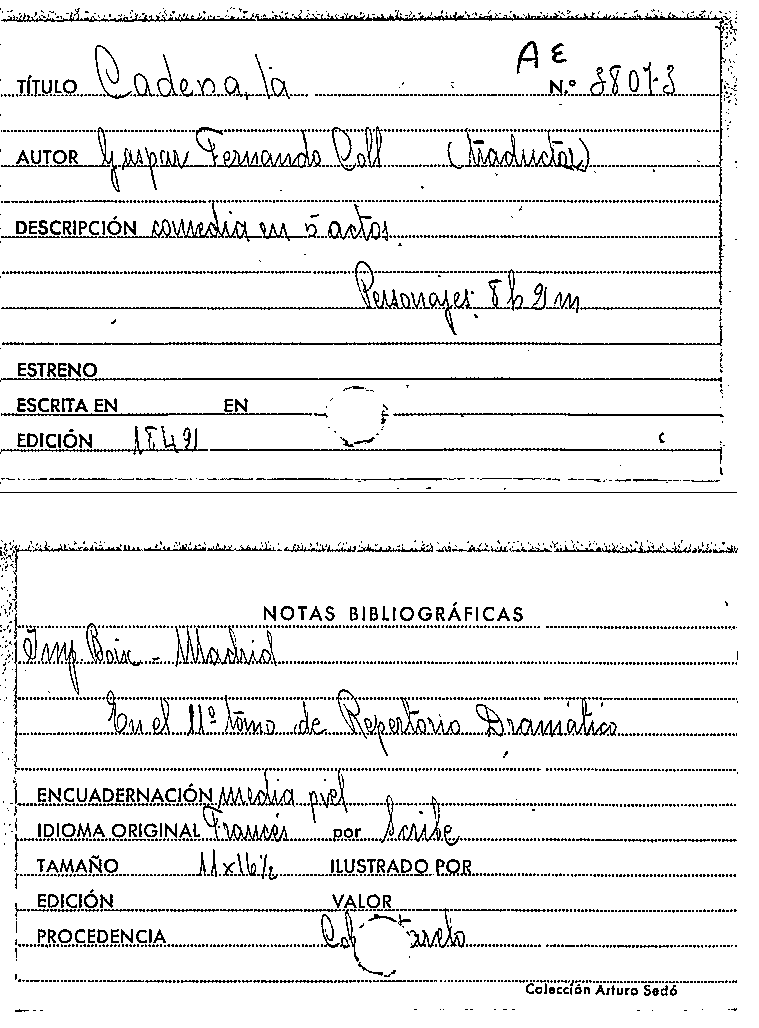 A E
TÍTULO Cadena, la N.º 38073
AUTOR Gaspar Fernando Coll (traductor)
DESCRIPCIÓN comedia en 5 actos.
Personajes: 8 h 2 m
ESTRENO
ESCRITA EN EN
EDICIÓN 1842
NOTAS BIBLIOGRÁFICAS
Imp Boix - Madrid
En el 11º tomo de Repertorio Dramático
ENCUADERNACIÓN media piel
IDIOMA ORIGINAL Francés por Scribe
TAMAÑO 11x16½ ILUSTRADO POR
EDICIÓN VALOR
PROCEDENCIA
Colección Arturo Sedó